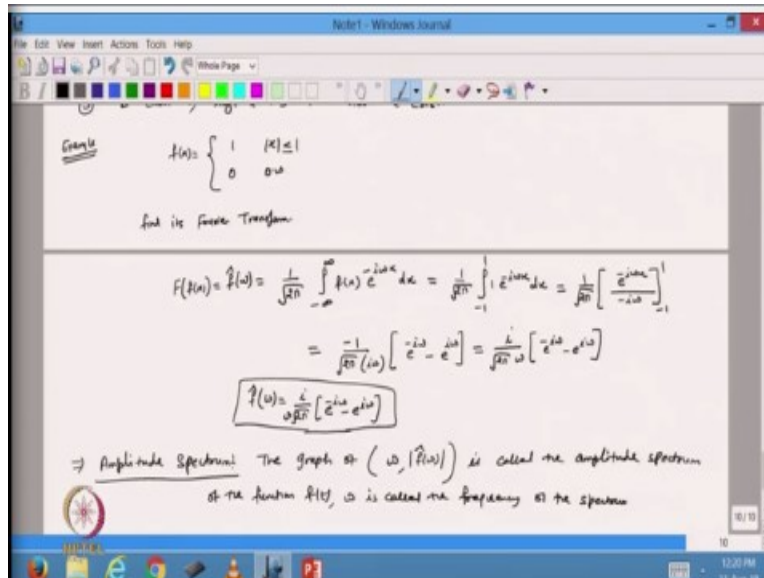 Note1 - Windows Journal
File Edit View Insert Actions Tools Help
Whole Page
B I
Example f(x) = { 1 |x| ≤ 1
0 o.w
find its Fourier Transform
F(f(x)) = f̂(ω) = 1/√2π ∫_{-∞}^{∞} f(x) e^{-iωx} dx = 1/√2π ∫_{-1}^{1} 1 e^{-iωx} dx = 1/√2π [ e^{-iωx} / -iω ]_{-1}^{1}
= -1/√2π (iω) [ e^{-iω} - e^{iω} ] = i/√2π ω [ e^{-iω} - e^{iω} ]
f̂(ω) = i/ω√2π [ e^{-iω} - e^{iω} ]
⇒ Amplitude Spectrum: The graph of (ω, |f̂(ω)|) is called the amplitude spectrum
of the function f(t), ω is called the frequency of the spectrum
NPTEL
10/10
10
12:20 PM